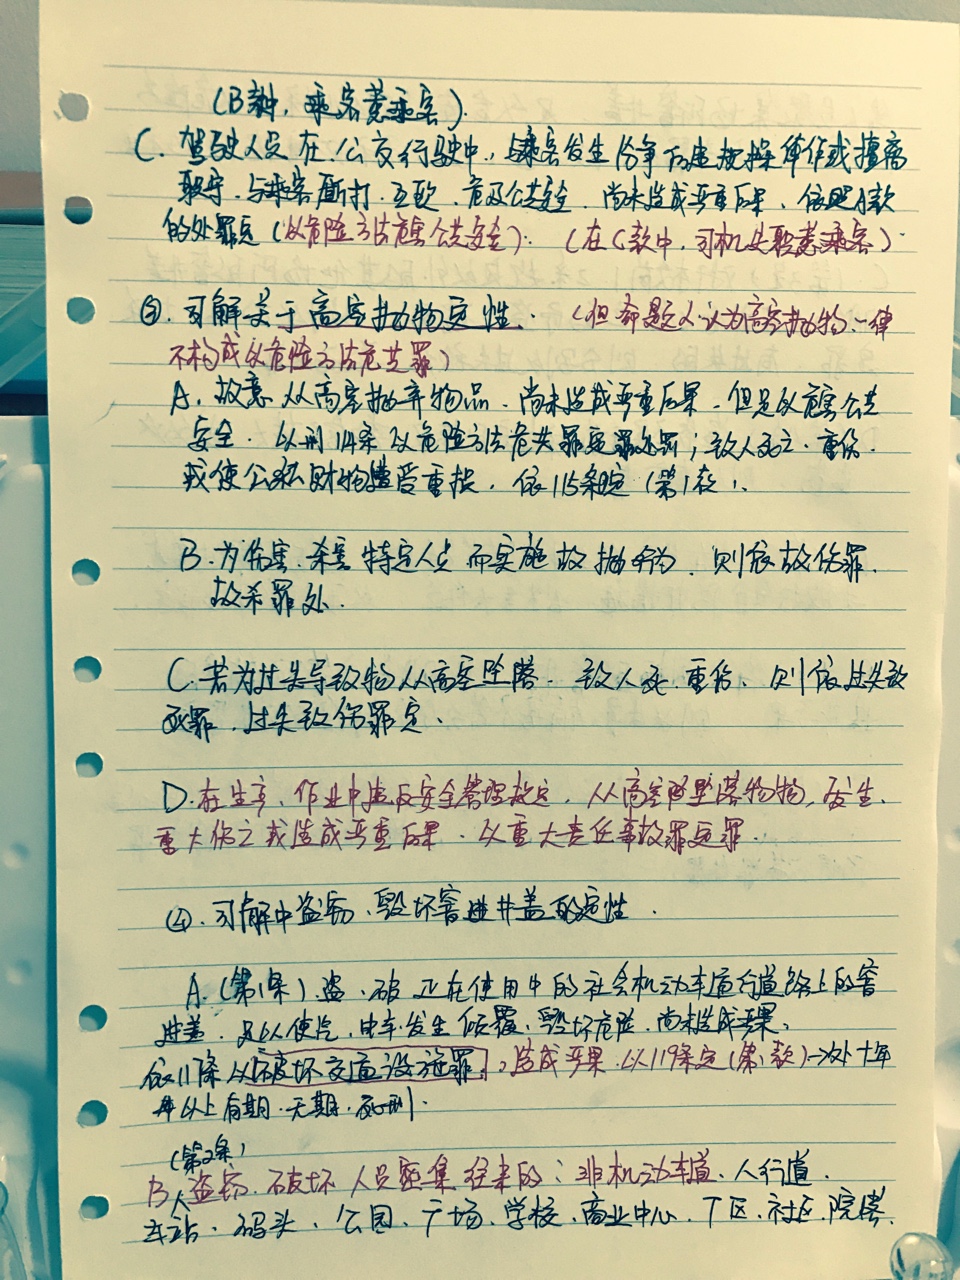 (B款中，乘客惹乘客).
C. 驾驶人员在公交行驶中，与乘客发生纷争后违规操作或擅离
职守，与乘客厮打、互殴，危及公共安全，尚未造成严重后果，依照A款
的处罪定（以危险方法危害公共安全）.（在C款中，司机失职惹乘客）.
③. 司解关于高空抛物定性. （但命题人认为高空抛物一律
不构成以危险方法危共罪）
A. 故意从高空抛弃物品，尚未造成严重后果，但足以危害公共
安全，以刑114条以危险方法危共罪定罪处罚；致人死亡、重伤
或使公私财物遭受重损，依115条定（第1款）.
B. 为伤害、杀害特定人员而实施故抛行为，则依故伤罪，
故杀罪处.
C. 若为过失导致物从高空坠落，致人死、重伤，则依过失致
死罪、过失致伤罪定、
D. 在生产、作业中违反安全管理规定，从高空坠落物物，发生
重大伤亡或造成严重后果，以重大责任事故罪定罪.
④. 司解中盗窃、毁坏窨井井盖的定性.
A. (第1条). 盗、破正在使用中的社会机动车道行道路上的窨
井盖，足以使汽、电车发生倾覆、毁坏危险，尚未造成严果，
依117条以破坏交通设施罪；造成严果，以119条定（第1款）→处十年
年以上有期、无期、死刑.
(第2条)
B. 盗窃、破坏人员密集往来的：非机动车道、人行道、
车站、码头、公园、广场、学校、商业中心、厂区、社区、院落、